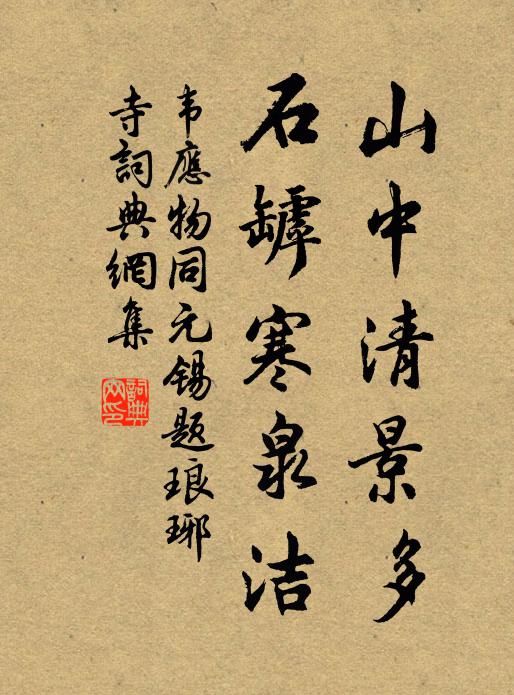 山中清景多
石罅寒泉洁
韦應物同元锡题琅琊
寺詞典網集
詞典
网印